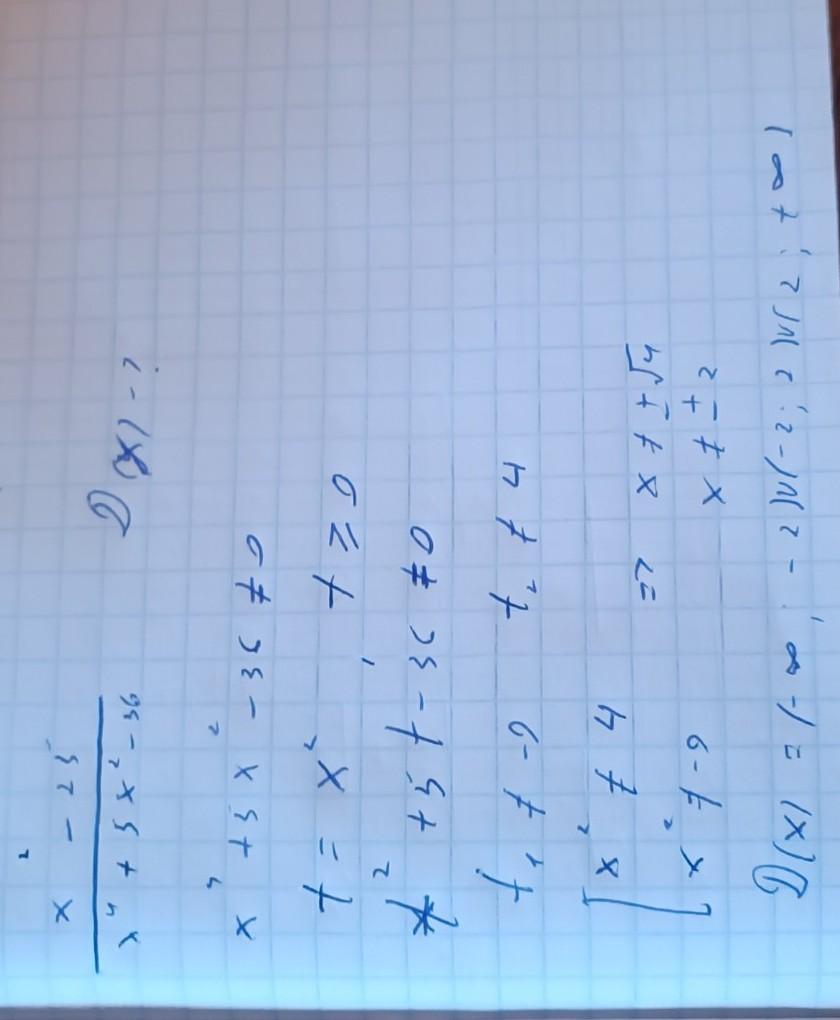 x² - 25
x⁴ + 5x² - 36
D(x) - ?
x⁴ + 5x² - 36 ≠ 0
t = x², t ≥ 0
t² + 5t - 36 ≠ 0
t₁ ≠ -9 t₂ ≠ 4
[ x² ≠ 4 => x ≠ ±√4
x² ≠ -9 x ≠ ± 2
D(x) = (-∞; -2)∪(-2; 2)∪(2; +∞)